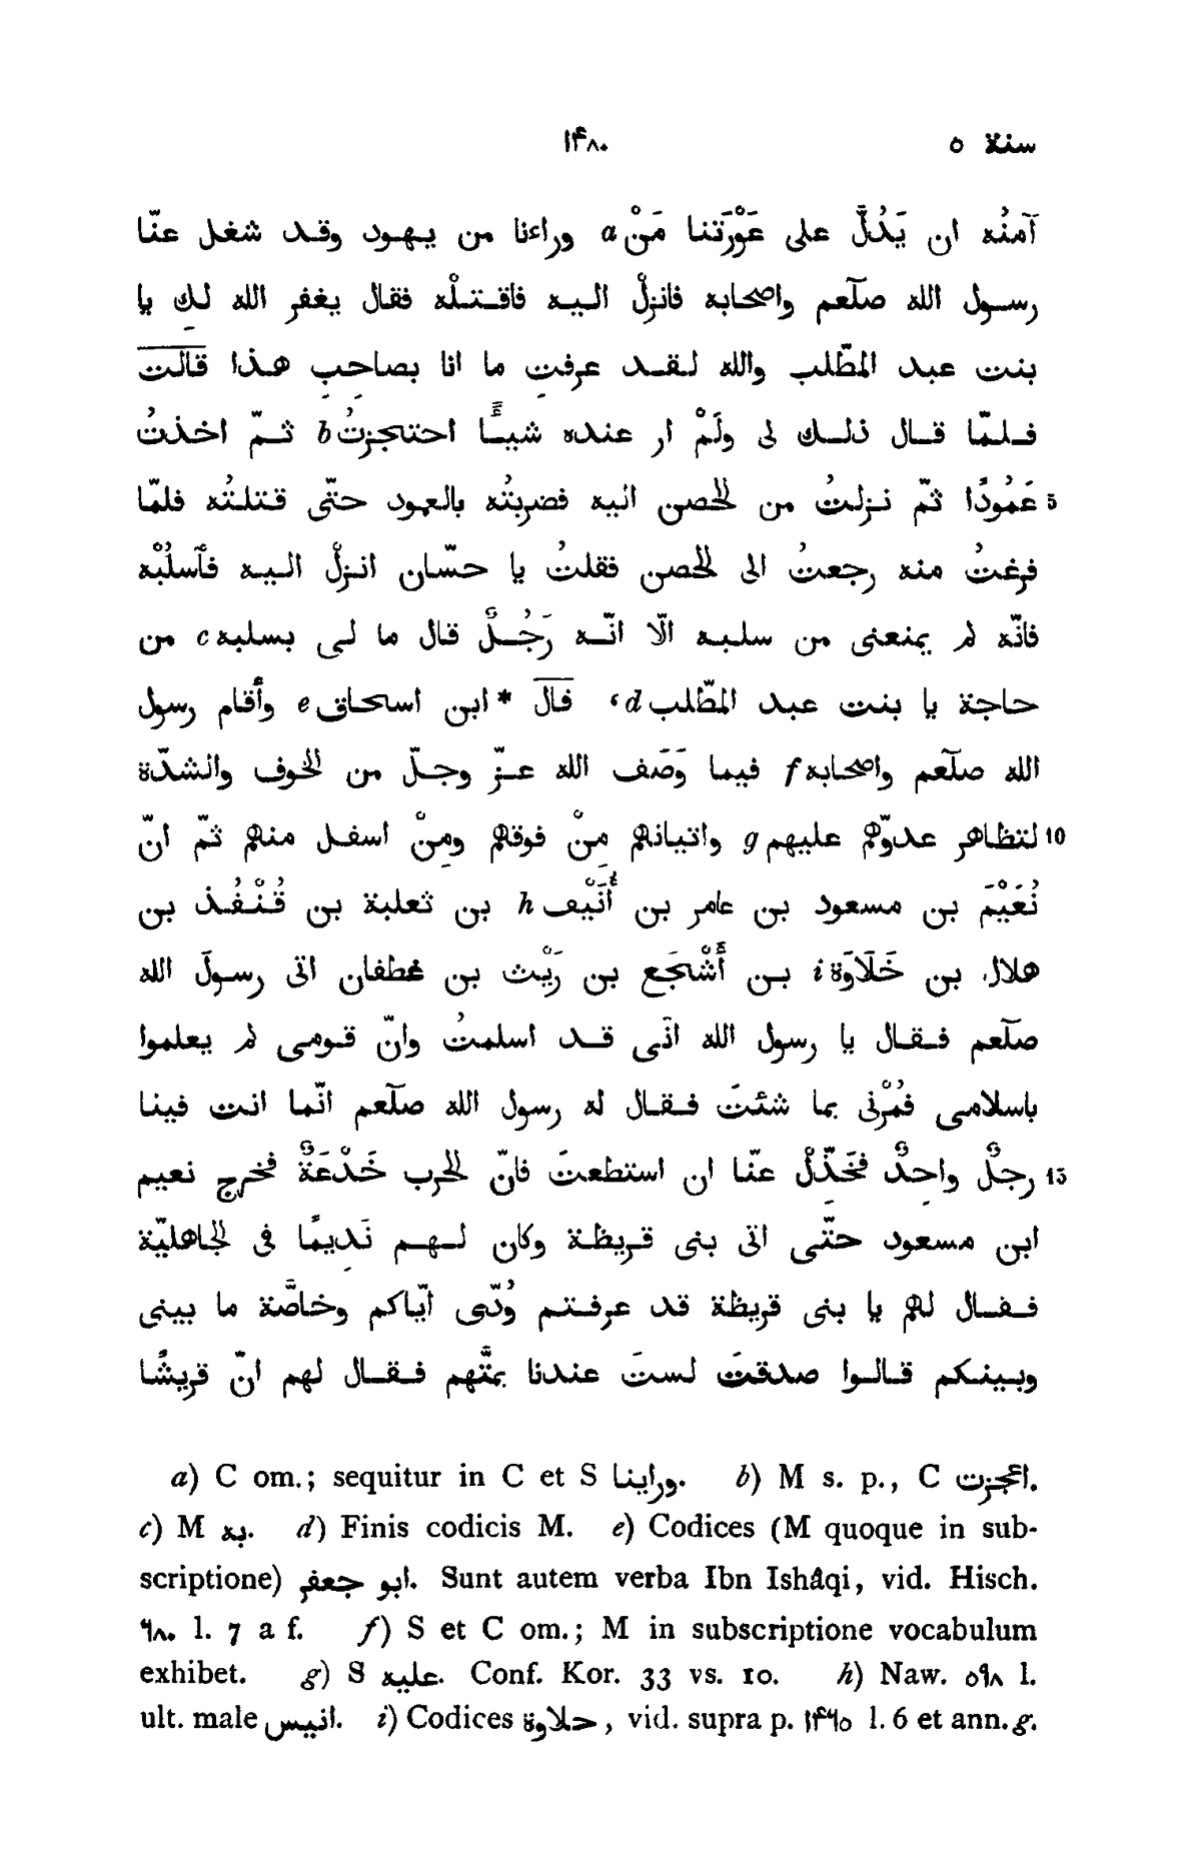 سنة ٥ ١۴٨٠
آمنُه ان يَدُلَّ على عَوْرَتنا مَنْ a وراءنا من يهود وقد شغل عنّا
رسول الله صلّعم واصحابه فانزِلْ اليه فاقتلْه فقال يغفر الله لكِ يا
بنت عبد المطّلب والله لقد عرفتِ ما انا بصاحِبِ هذا قالت
فلمّا قال ذلك لى ولَمْ ار عنده شيـًٔا احتجزتُ b ثمّ اخذتُ
عَمُودًا ثمّ نزلتُ من الحصن اليه فضربتُه بالعمود حتّى قتلتُه فلمّا 5
فرغتُ منه رجعتُ الى الحصن فقلتُ يا حسّان انزِلْ اليه فَأسلُبْه
فانّه لم يمنعنى من سلبه الّا انّه رَجُلٌ قال ما لى بسلبه c من
حاجة يا بنت عبد المطّلب d، قال * ابن اسحاق e وأقام رسول
الله صلّعم واصحابه f فيما وَصَف الله عزّ وجلّ من الخوف والشدّة
لتظاهر عدوّهم عليهم g واتيانهم مِنْ فوقهم ومِنْ اسفل منهم ثمّ انّ 10
نُعَيْمَ بن مسعود بن عامر بن أُنَيْف h بن ثعلبة بن قُنْفُذ بن
هلال بن خَلَاوَة i بن أَشْجَع بن رَيْث بن غطفان اتى رسولَ الله
صلّعم فقال يا رسول الله انّى قد اسلمتُ وانّ قومى لم يعلموا
باسلامى فمُرْنى بما شئتَ فقال له رسول الله صلّعم انّما انت فينا
رجلٌ واحدٌ فخَذِّلْ عنّا ان استطعتَ فانّ الحرب خَدْعَةٌ فخرج نعيم 15
ابن مسعود حتّى اتى بنى قريظة وكان لهم نَديمًا فى الجاهليّة
فقال لهم يا بنى قريظة قد عرفتم وُدّى ايّاكم وخاصَّة ما بينى
وبينكم قالوا صدقتَ لستَ عندنا بمتَّهم فقال لهم انّ قريشًا
a) C om.; sequitur in C et S وراينا. b) M s. p., C اعجزت.
c) M به. d) Finis codicis M. e) Codices (M quoque in sub-
scriptione) ابو جعفر. Sunt autem verba Ibn Ishâqi, vid. Hisch.
٩٨٠ l. 7 a f. f) S et C om.; M in subscriptione vocabulum
exhibet. g) S عليه. Conf. Kor. 33 vs. 10. h) Naw. ٥٩٨ l.
ult. male انيس. i) Codices حلاوة, vid. supra p. ١۴٦٥ l. 6 et ann. g.